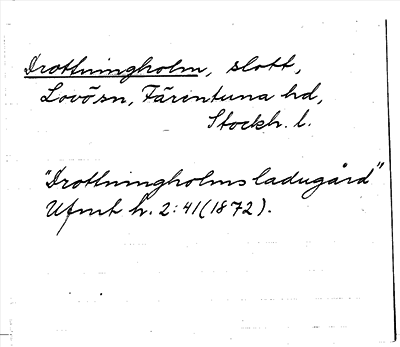 Drottningholm, slott,
Lovösn, Färentuna hd,
Stockh. l.
"Drottningholms ladugård"
Ufmt h. 2:41 (1872).